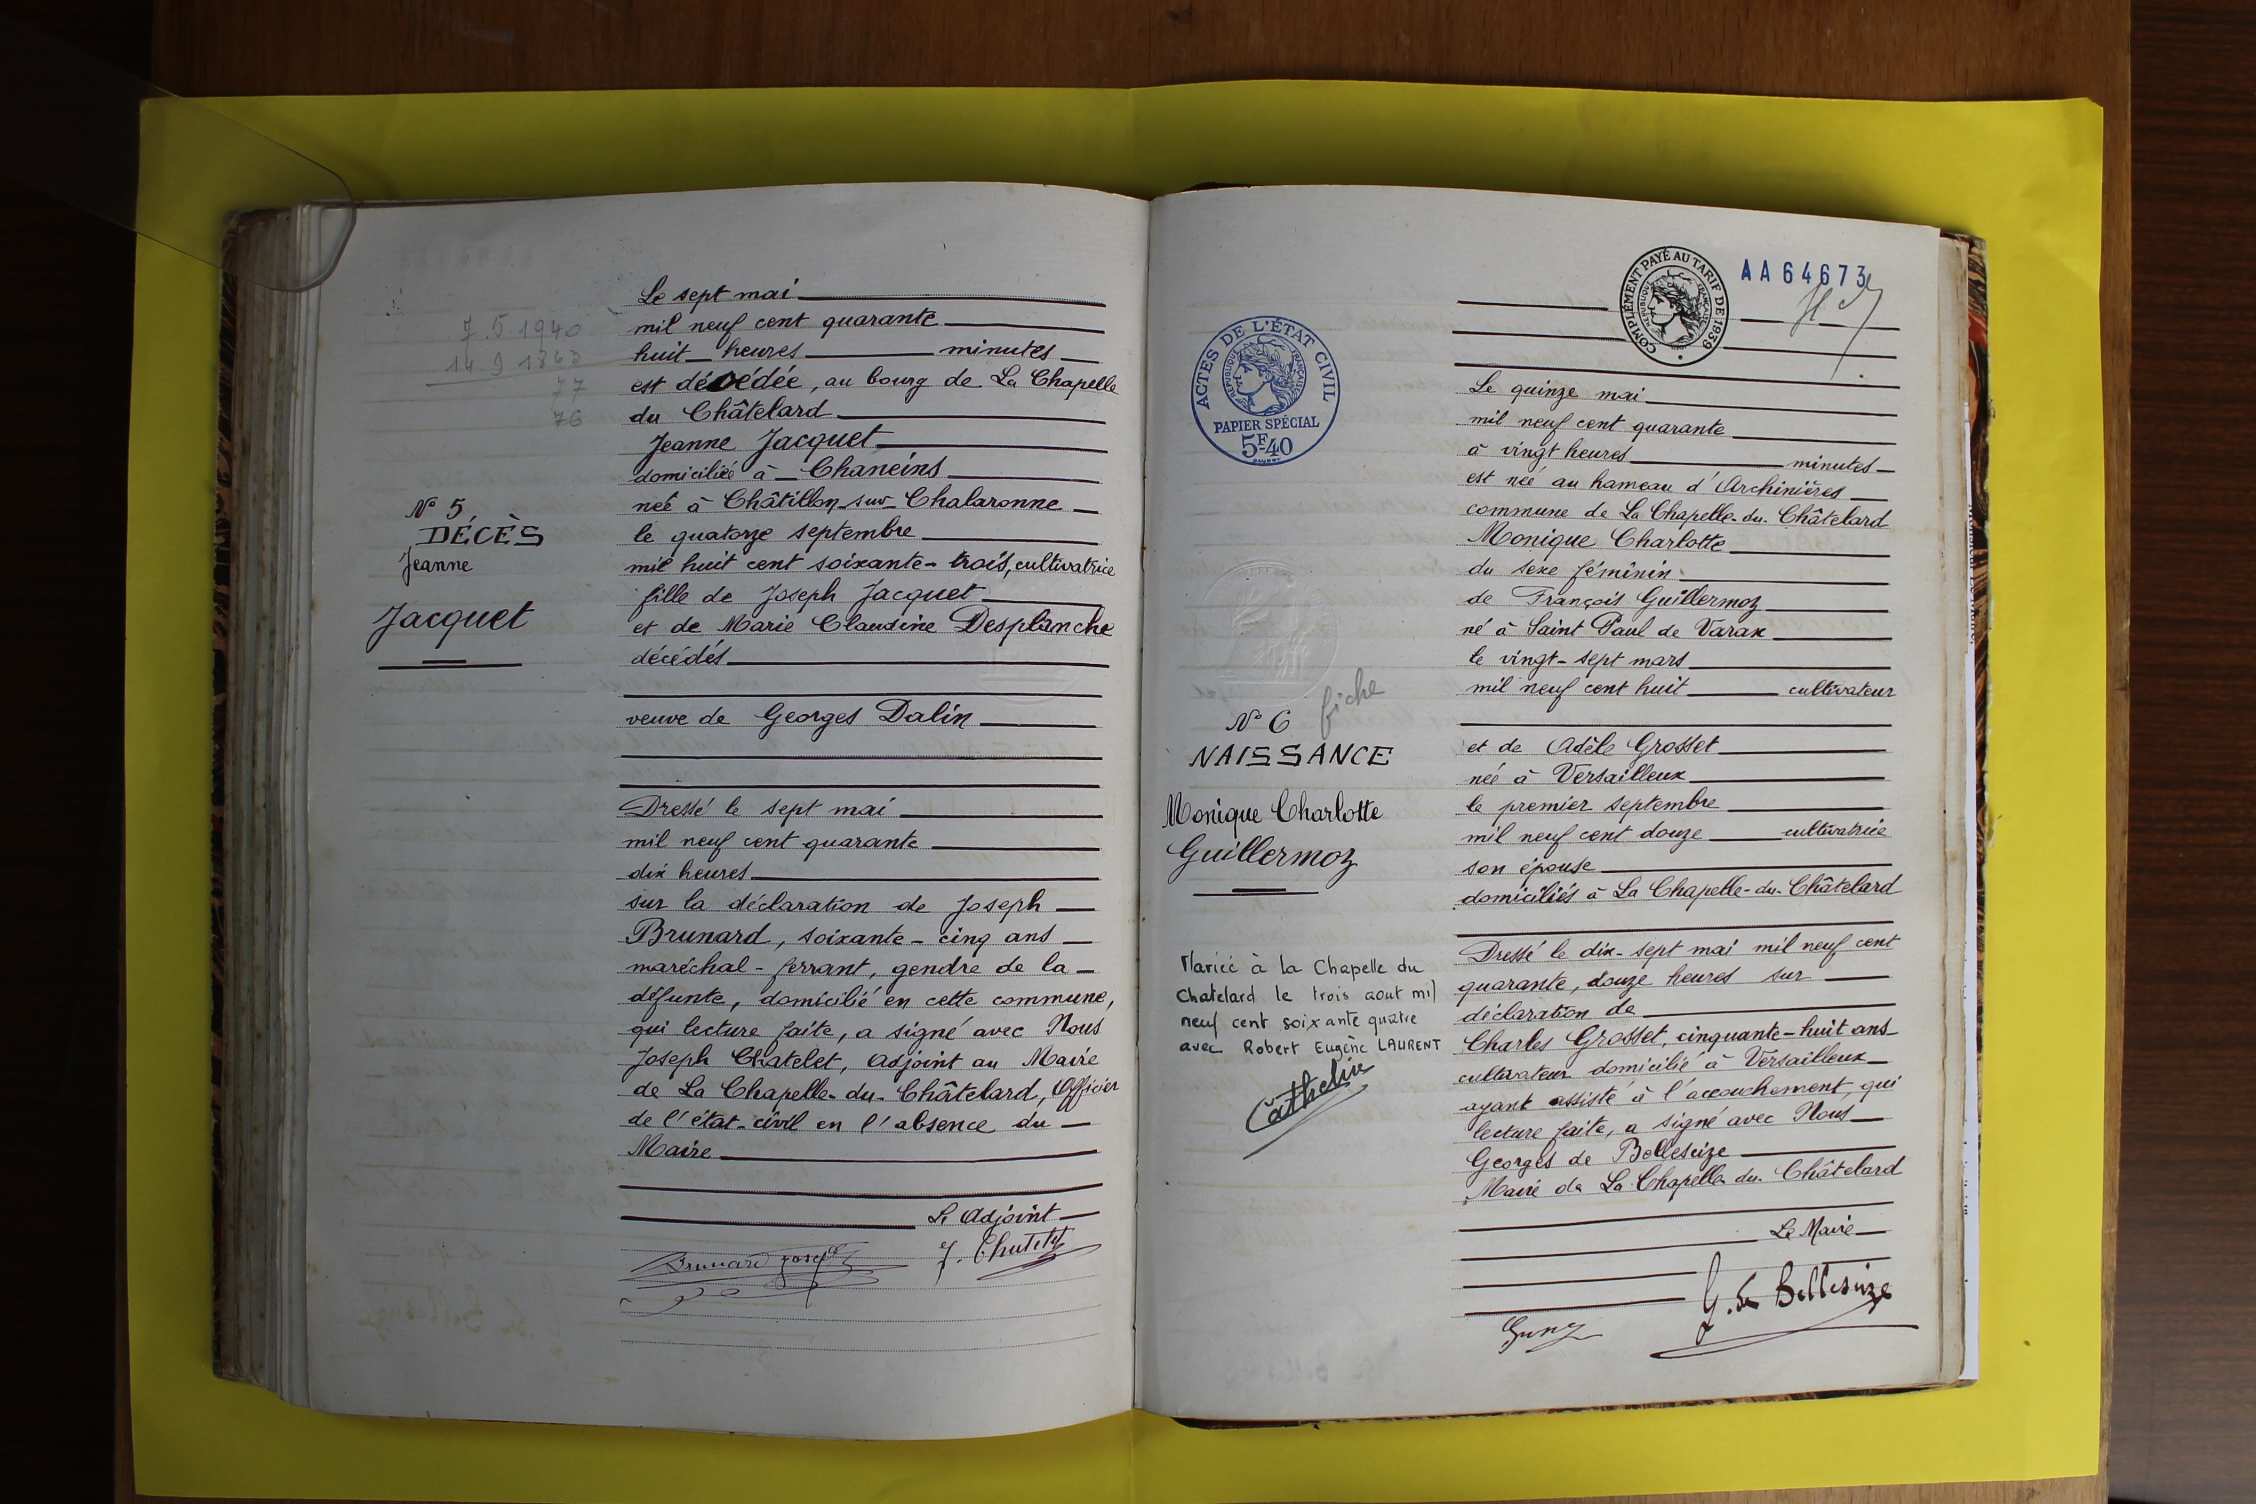 7.5 1940
14 9 1863
77
76
N° 5
DÉCÈS
Jeanne
Jacquet
Le sept mai
mil neuf cent quarante
huit heures minutes
est décédée, au bourg de La Chapelle
du Châtelard
Jeanne Jacquet
domiciliée à Chaneins
née à Châtillon-sur-Chalaronne
le quatorze septembre
mil huit cent soixante-trois, cultivatrice
fille de Joseph Jacquet
et de Marie Claudine Desplanche
décédés
veuve de Georges Dalin
Dressé le sept mai
mil neuf cent quarante
dix heures
sur la déclaration de Joseph
Brunard, soixante-cinq ans
maréchal-ferrant, gendre de la
défunte, domicilié en cette commune,
qui lecture faite, a signé avec Nous
Joseph Chatelet, Adjoint au Maire
de La Chapelle-du-Châtelard, Officier
de l'état-civil en l'absence du
Maire
L'Adjoint
Brunard Joseph
J. Chatelet
ACTES DE L'ÉTAT CIVIL
RÉPUBLIQUE FRANÇAISE
PAPIER SPÉCIAL
5F.40
fiche
N° 6
NAISSANCE
Monique Charlotte
Guillermoz
Mariée à la Chapelle du
Chatelard le trois aout mil
neuf cent soixante quatre
avec Robert Eugène LAURENT
Cathelin
COMPLÉMENT PAYÉ AU TARIF DE 1939
RÉPUBLIQUE FRANÇAISE
AA64673
Le quinze mai
mil neuf cent quarante
à vingt heures minutes
est née au hameau d'Archinières
commune de La Chapelle-du-Châtelard
Monique Charlotte
du sexe féminin
de François Guillermoz
né à Saint Paul de Varax
le vingt-sept mars
mil neuf cent huit cultivateur
et de Adèle Grosset
née à Versailleux
le premier septembre
mil neuf cent douze cultivatrice
son épouse
domiciliés à La Chapelle-du-Châtelard
Dressé le dix-sept mai mil neuf cent
quarante, douze heures sur
déclaration de
Charles Grosset, cinquante-huit ans
cultivateur domicilié à Versailleux
ayant assisté à l'accouchement, qui
lecture faite, a signé avec Nous
Georges de Bellescize
Maire de La Chapelle-du-Châtelard
Le Maire
G. de Bellescize